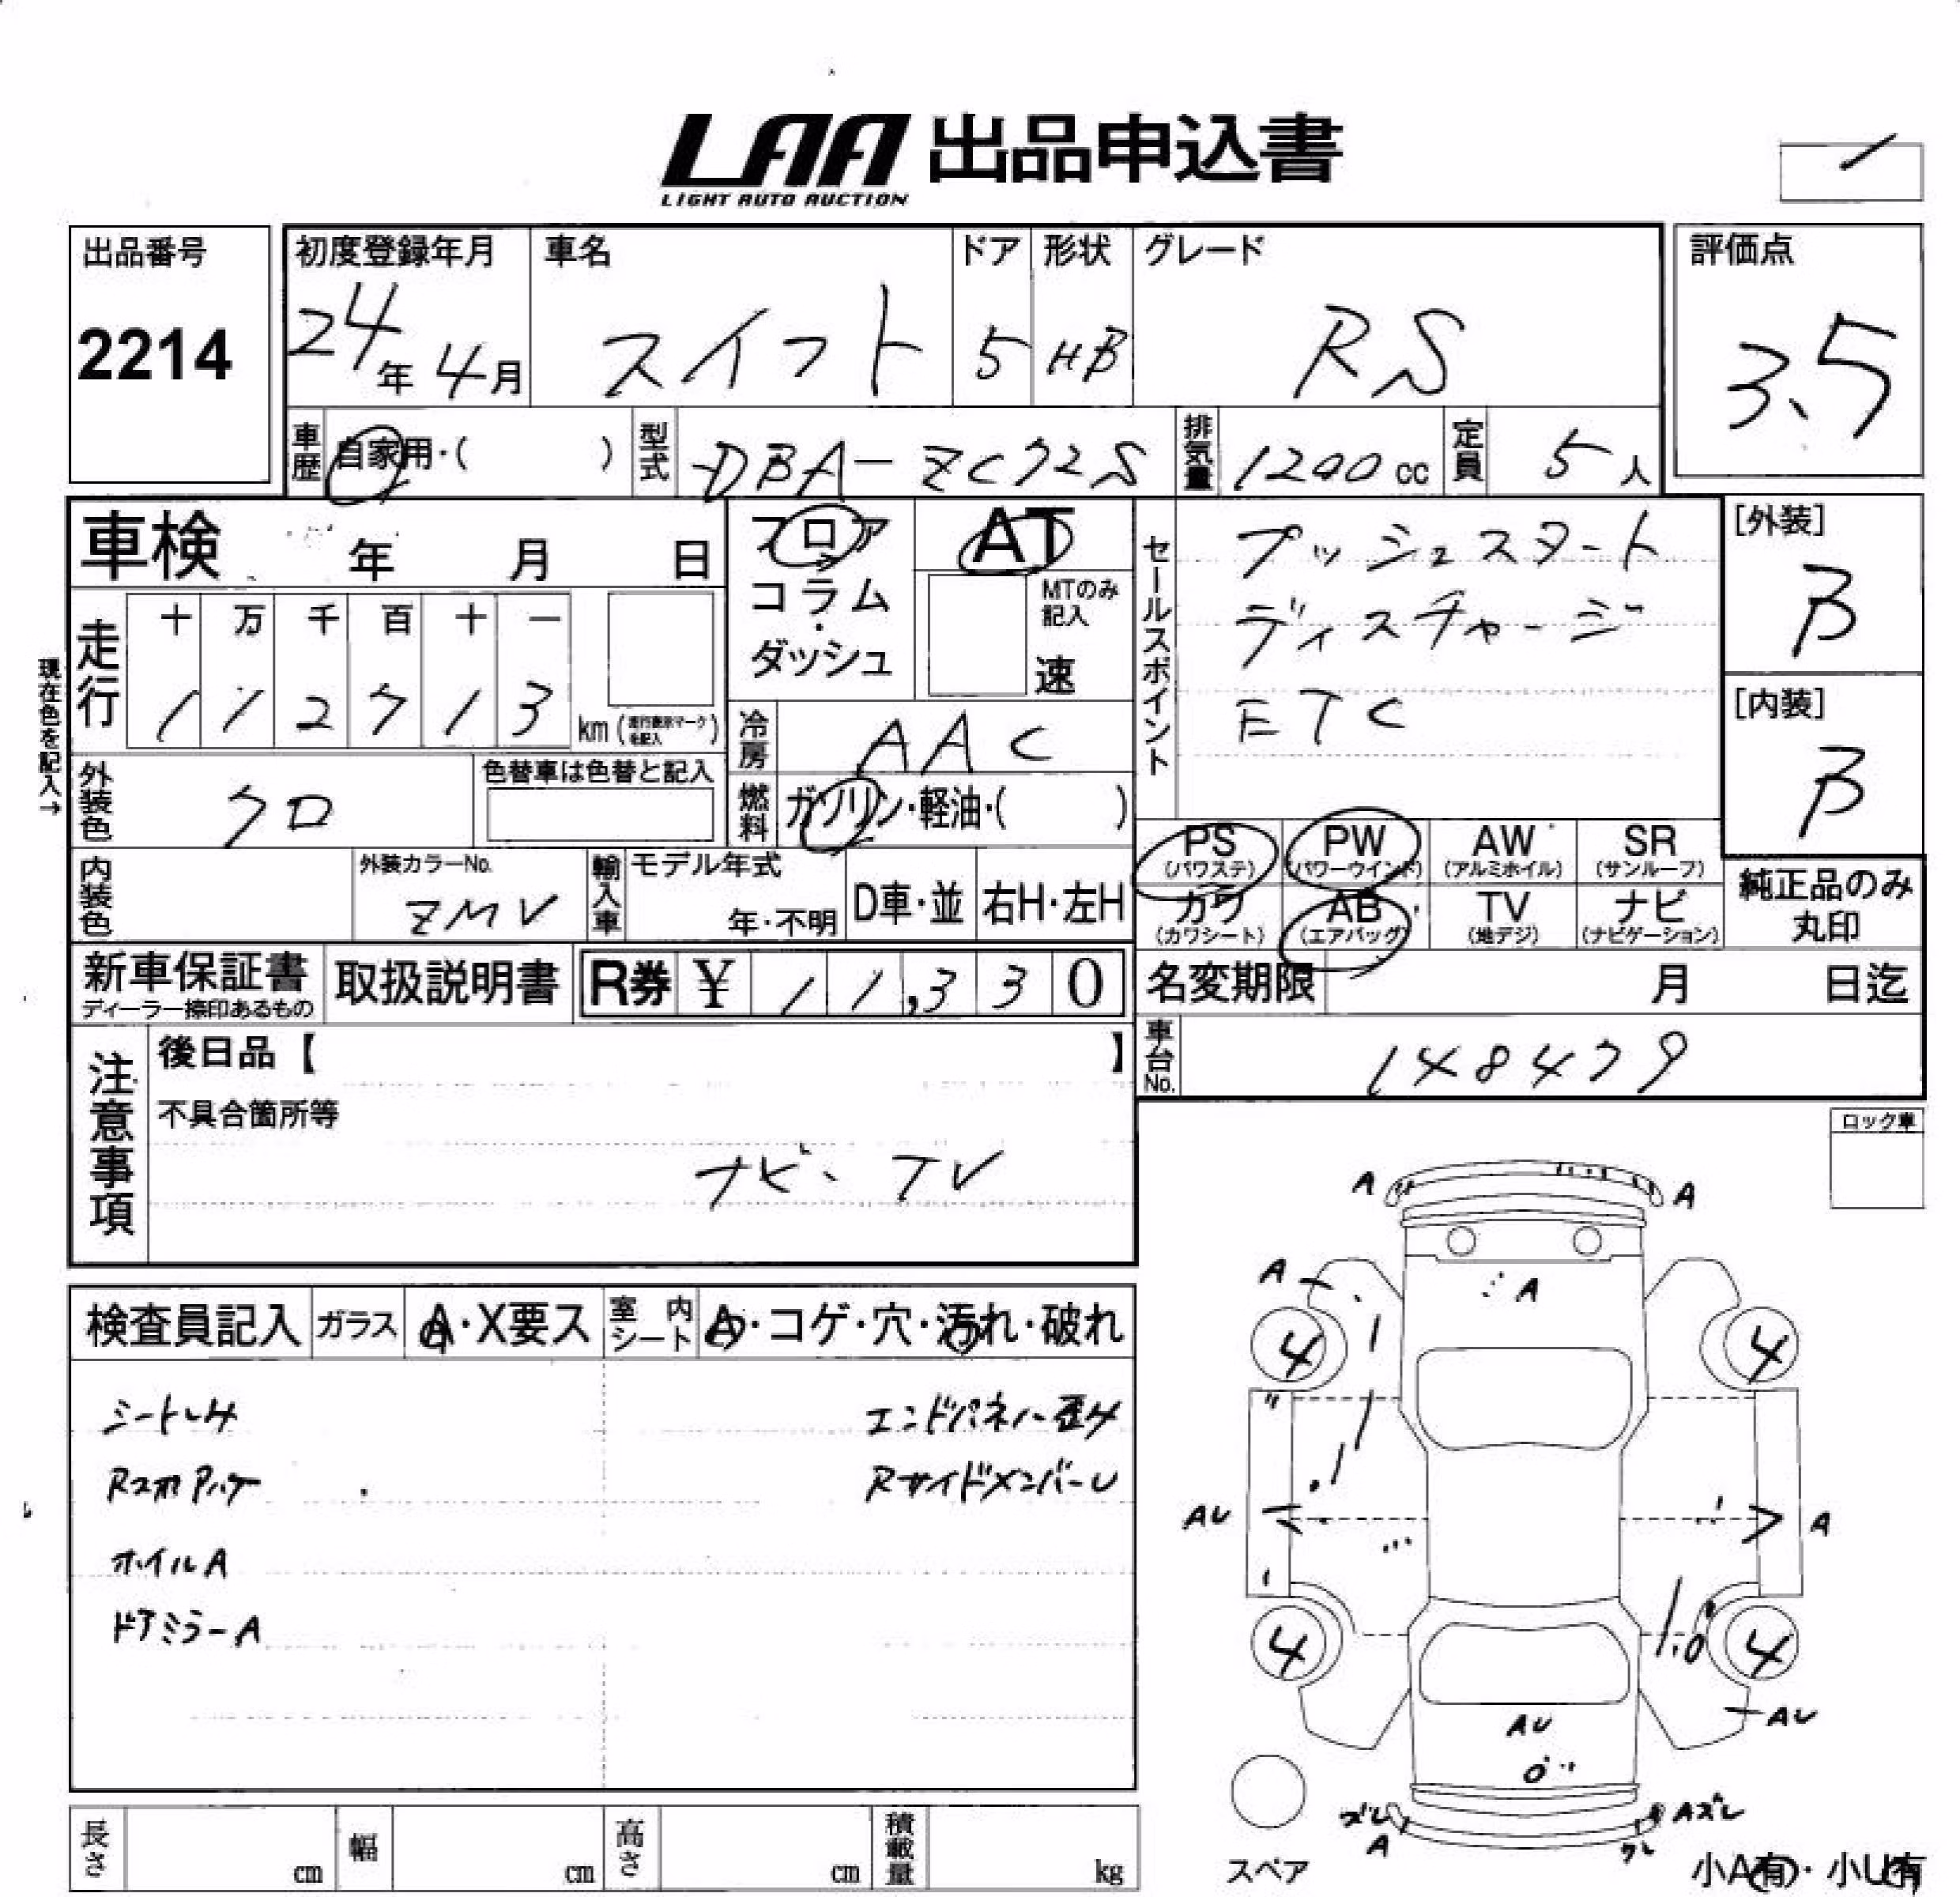 LAA 出品申込書
LIGHT AUTO AUCTION
出品番号
2214
初度登録年月
24年 4月
車名
スイフト
ドア
5
形状
HB
グレード
RS
評価点
3.5
車歴
自家用・( )
型式
DBA-ZC72S
排気量
1200 cc
定員
5人
車検 年 月 日
フロア
コラム
・
ダッシュ
AT
MTのみ
記入
速
セールスポイント
プッシュスタート
ディスチャージ
ETC
[外装]
B
[内装]
B
現在色を記入→
走行
十 万 千 百 十 一
1 1 2 7 1 3
km (走行表示マークを記入)
冷房
AAC
燃料
ガソリン・軽油・( )
外装色
クロ
色替車は色替と記入
内装色
外装カラーNo.
ZMV
輸入車
モデル年式
年・不明
D車・並
右H・左H
PS
(パワステ)
PW
(パワーウインド)
AW
(アルミホイル)
SR
(サンルーフ)
カワ
(カワシート)
AB
(エアバッグ)
TV
(地デジ)
ナビ
(ナビゲーション)
純正品のみ
丸印
新車保証書
ディーラー捺印あるもの
取扱説明書
R券 ¥ 11,330
名変期限 月 日迄
車台No.
148479
注意事項
後日品【 】
不具合箇所等
ナビ、TV
ロック車
検査員記入
ガラス
A・X要ス
室内
シート
A・コゲ・穴・汚れ・破れ
エンドパネル歪み
RサイドメンバーU
ホイルA
ドアミラーA
A
A
A
A
4
4
AU
A
4
4
AU
AU
ズレ
A
Aズレ
スペア
小A有・小U有
長さ cm
幅 cm
高さ cm
積載量 kg